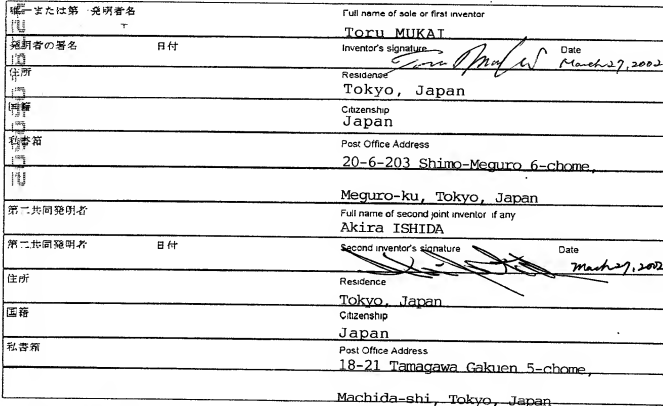 唯一または第一発明者名
Full name of sole or first inventor
Toru MUKAI
発明者の署名 日付
Inventor's signature Date
Toru Mukai March 27, 2002
住所
Residence
Tokyo, Japan
国籍
Citizenship
Japan
私書箱
Post Office Address
20-6-203 Shimo-Meguro 6-chome,
Meguro-ku, Tokyo, Japan
第二共同発明者
Full name of second joint inventor if any
Akira ISHIDA
第二共同発明者 日付
Second inventor's signature Date
March 27, 2002
住所
Residence
Tokyo, Japan
国籍
Citizenship
Japan
私書箱
Post Office Address
18-21 Tamagawa Gakuen 5-chome,
Machida-shi, Tokyo, Japan